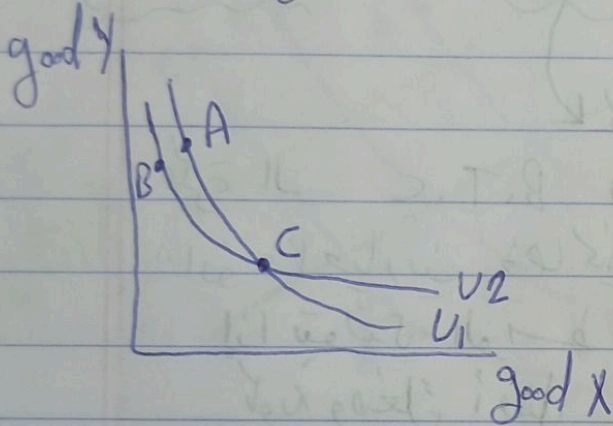 good Y
A
B
C
U2
U1
good X